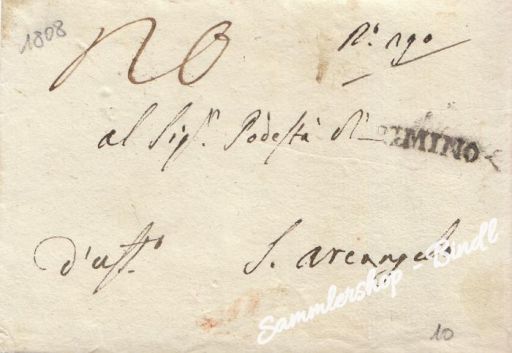 1808
N.º 190
al Sig.r Podestà di RIMINO
d'uff.o S. Arcangelo
Sammlershop - Bindl
10